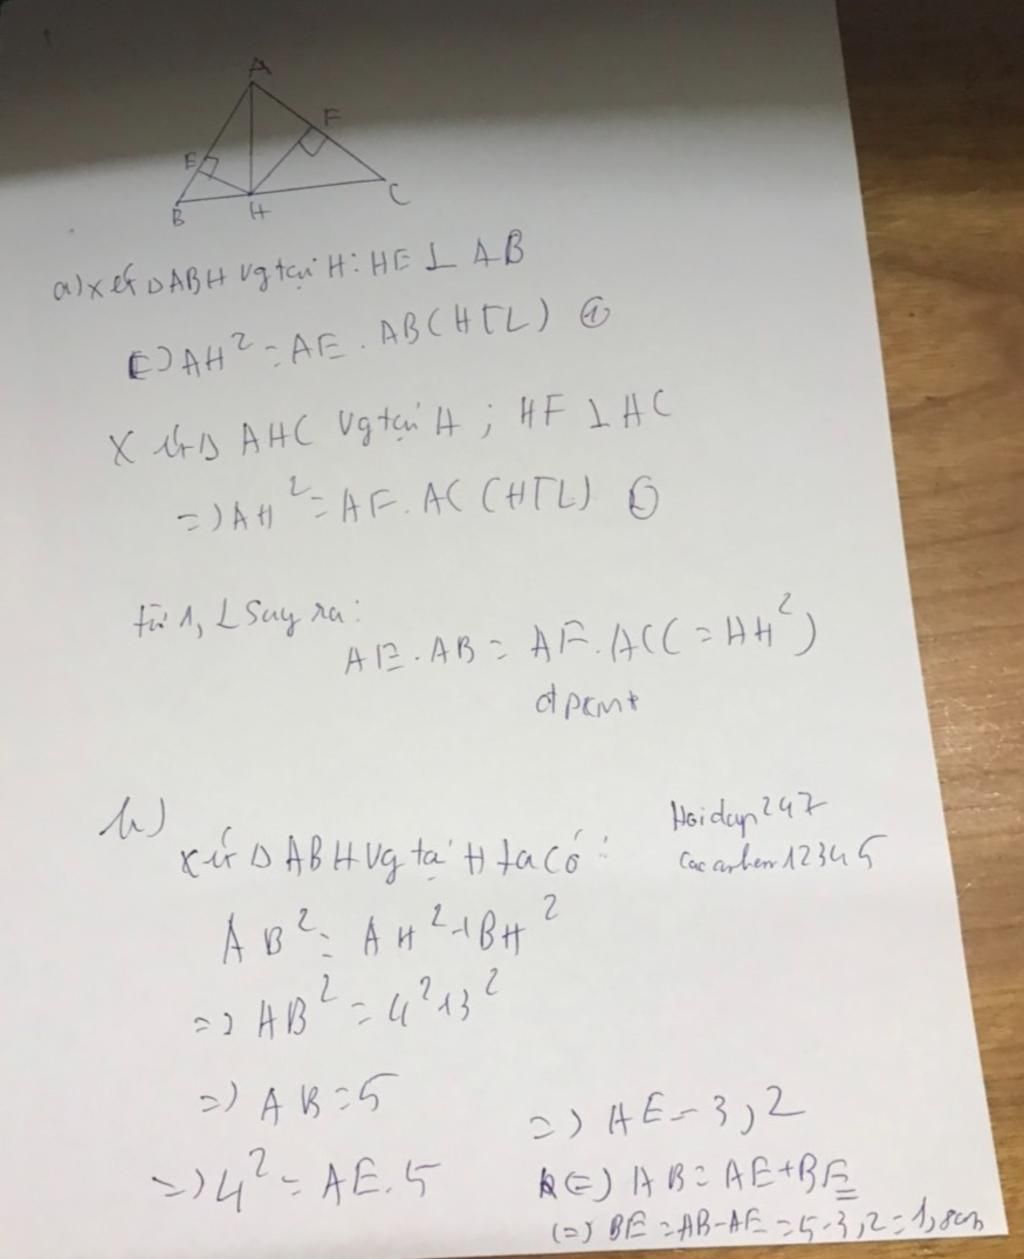 A
F
E
B
H
C
a) xét Δ ABH vg tại H: HE ⊥ AB
AH² = AE . AB (HTL) ①
Xét Δ AHC vg tại H ; HF ⊥ AC
=) AH² = AF. AC (HTL) ②
từ 1, 2 suy ra:
AE . AB = AF. AC (= AH²)
đpcm
b)
xét Δ ABH vg tại H ta có :
Hoidap247
12345
AB² = AH² + BH²
=) AB² = 4² + 3²
=) AB = 5
=) 4² = AE. 5
=) AE = 3,2
(=) AB = AE + BE
(=) BE = AB - AE = 5 - 3,2 = 1,8cm